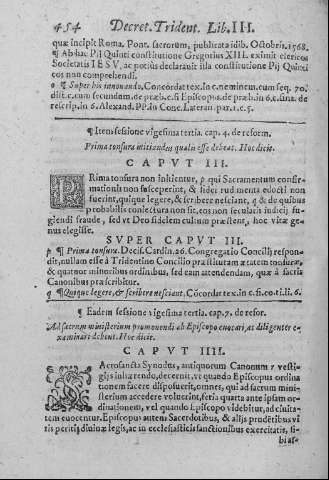 454 Decret. Trident. Lib. III.
quæ incipit Roma. Pont. sacrorum, publicata idib. Octobris. 1568.
¶ Ab hac Pij Quinti constitutione Gregorius XIII. eximit clericos
Societatis IESV, ac potius declarauit illa constitutione Pij Quinti
eos non comprehendi.
o ¶ Super his innouando. Concordat tex. in c. nemin. cum seq. 70.
dist. c. cum secundum. de præb. c. si Episcopus. de præb. in 6. c. sina. de
rescrip. in 6. Alexand. PP. in Conc. Lateran. par. 1. c. 5.
¶ Item sessione vigesima tertia. cap. 4. de reform.
Prima tonsura initiandus qualis esse debeat. Hoc dicit.
CAPVT III.
PRima tonsura non initientur, p qui Sacramentum confir-
mationis non susceperint, & fidei rudimenta edocti non
fuerint, quique legere, & scribere nesciant, q & de quibus
probabilis coniectura non sit, eos non secularis iudicij fu-
giendi fraude, sed vt Deo fidelem cultum præstent, hoc vitæ ge-
nus elegisse.
SVPER CAPVT III.
p ¶ Prima tonsura. Decis. Cardin. 26. Congregatio Concilij respon-
dit, nullam esse à Tridentino Concilio præstitutam ætatem tonsuræ,
& quatuor minoribus ordinibus, sed eam attendendam, quæ à sacris
Canonibus præscribitur.
q ¶ Quique legere, & scribere nesciant. Cōcordat tex. in c. fi. co. ti. li. 6.
¶ Eadem sessione vigesima tertia. cap. 7. de refor.
Ad sacrum ministerium promouendi ab Episcopo euocari, ac diligenter e-
xaminari debent. Hoc dicit.
CAPVT IIII.
SAcrosancta Synodus, antiquorum Canonum r vesti-
gijs inhærendo, decernit, vt quando Episcopus ordina
tionem facere disposuerit, omnes, qui ad sacrum mini-
sterium accedere voluerint, feria quarta ante ipsam or-
dinationem, vel quando Episcopo videbitur, ad ciuita-
tem euocentur. Episcopus autem Sacerdotibus, & alijs prudētibus vi
ris peritis diuinæ legis, ac in ecclesiasticis sanctionibus exercitatis, si-
bi as-